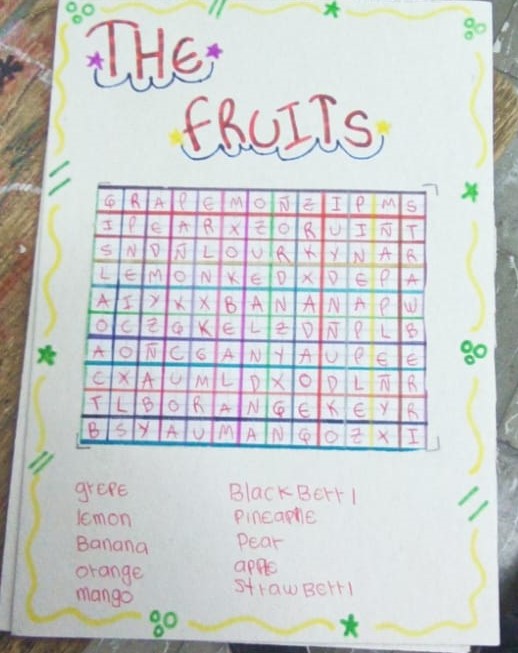 THE
FRUITS
G R A P E M O Ñ Z I P M S
I P E A R X Z O R U I Ñ T
S N D Ñ L O U R K Y N A R
L E M O N K E D X D E P A
A I Y K X B A N A N A P W
O C Z G K E L Z D Ñ P L B
A O Ñ C G A N Y A U P E E
C X A U M L D X O D L Ñ R
T L B O R A N G E K E Y R
B S Y A U M A N G O Z X I
grepe
lemon
Banana
orange
mango
Black Berri
Pineaple
Pear
apple
Straw Berri